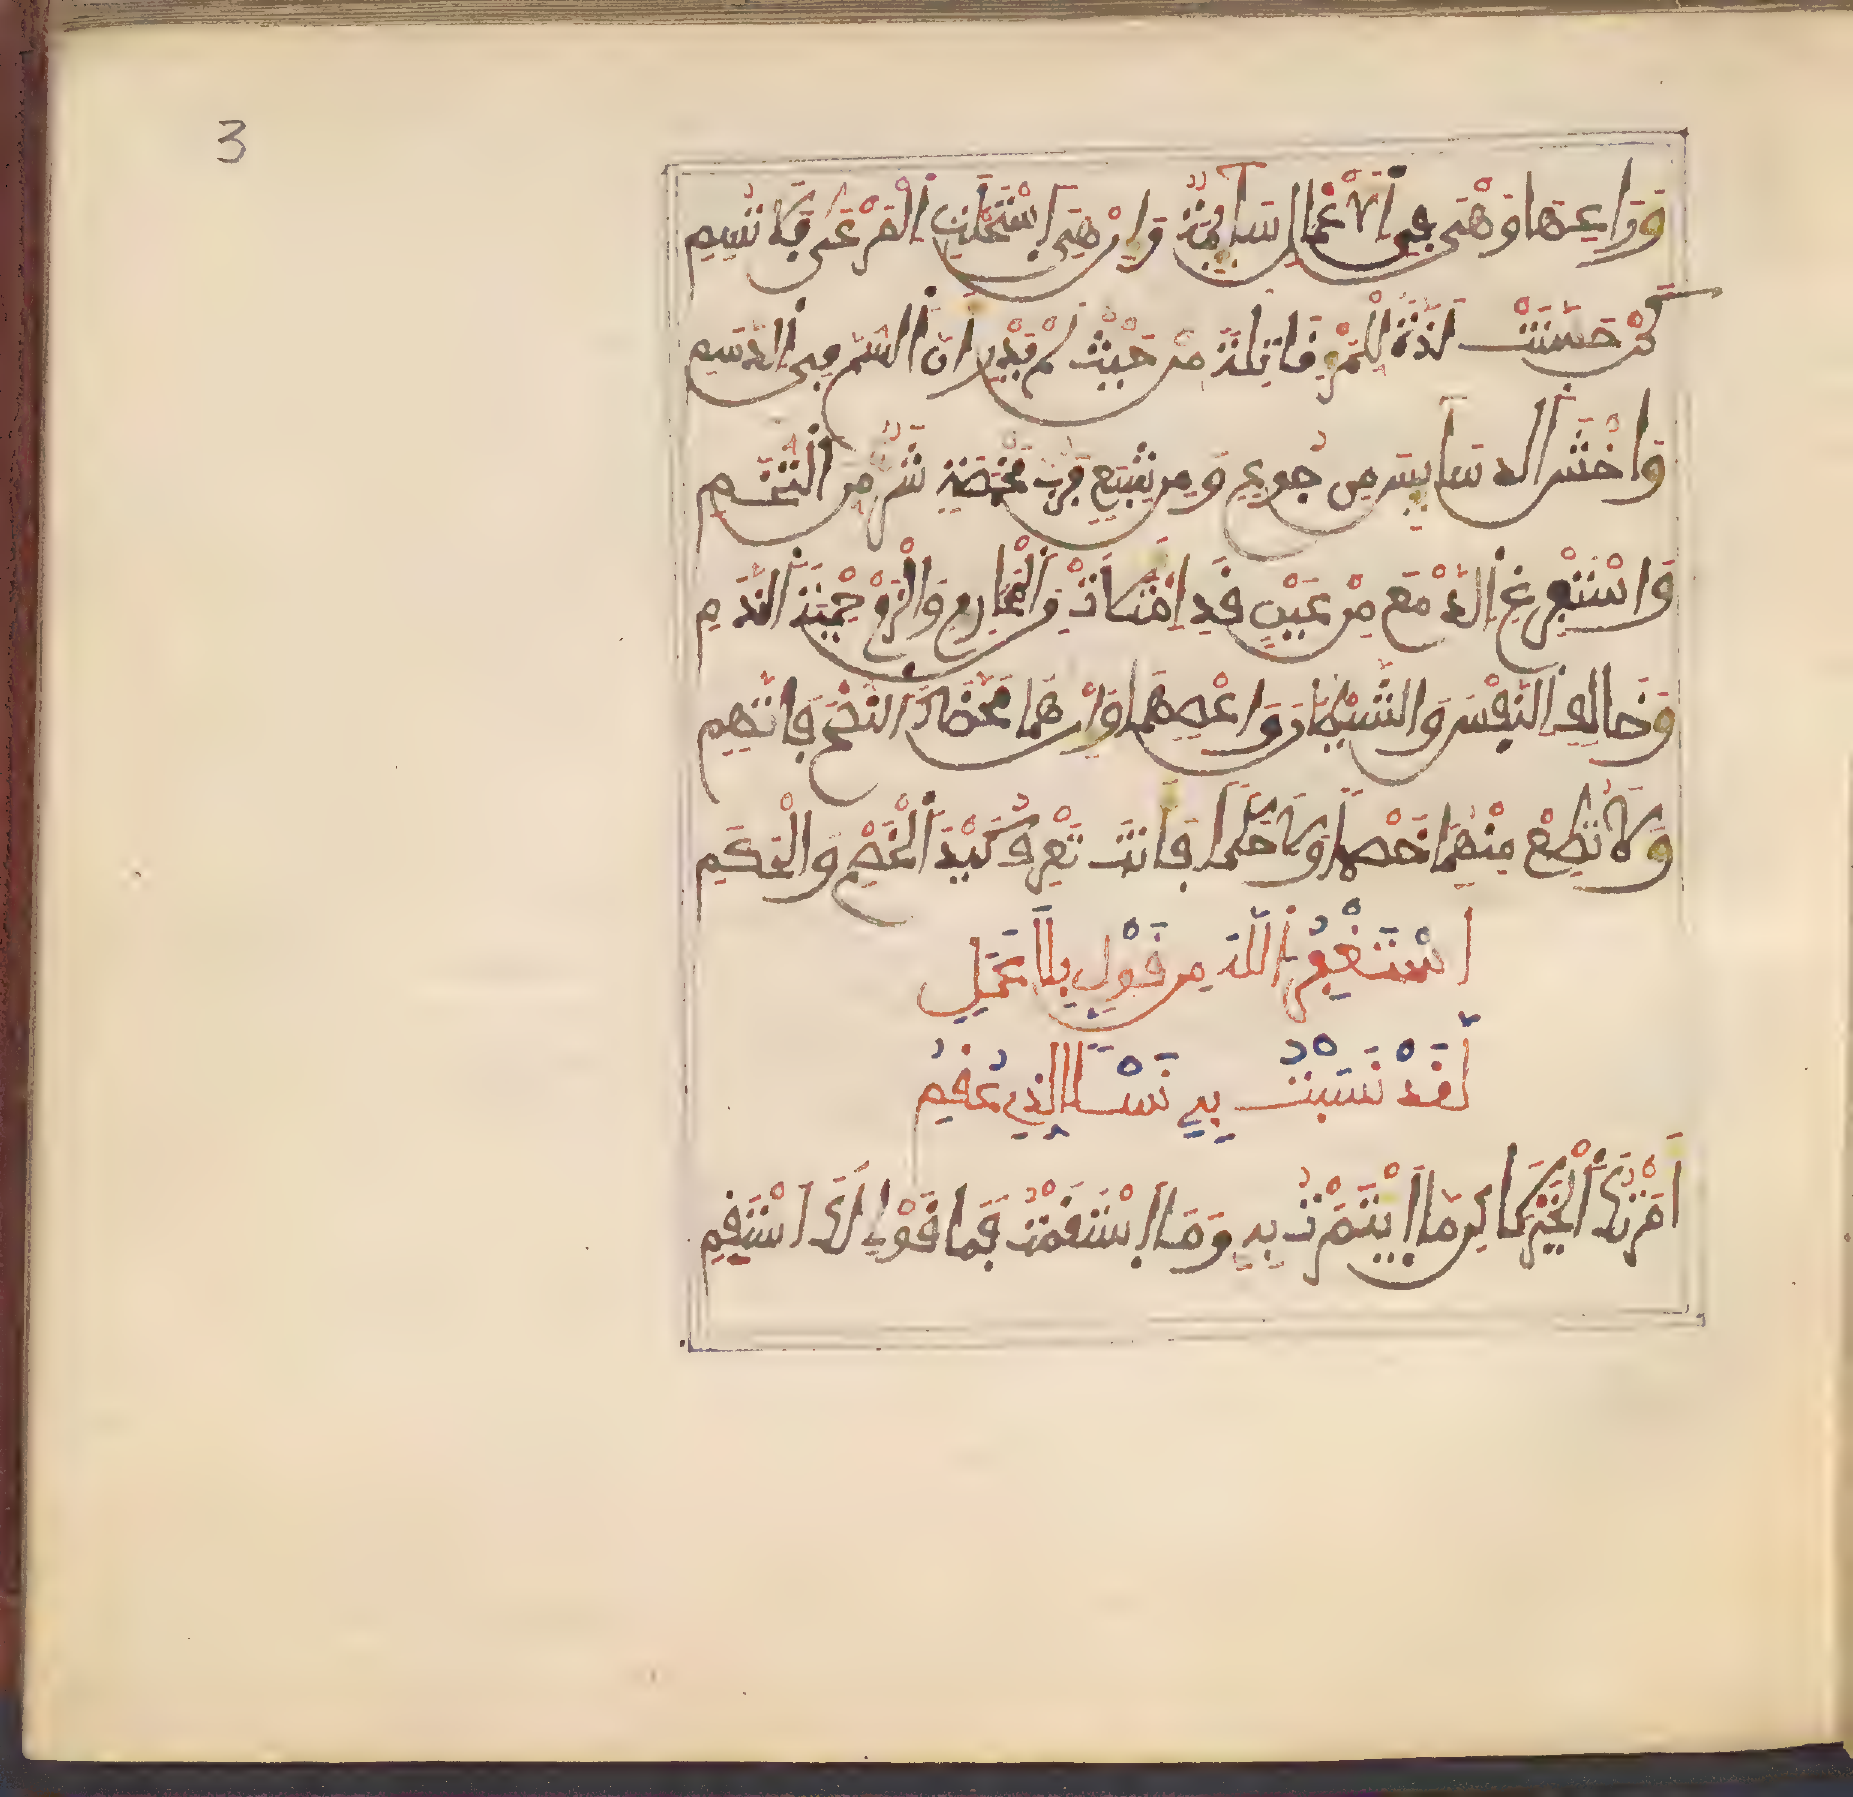 3
وَرَاعِهَا وَهْيَ فِي الْأَعْمَالِ سَائِمَةٌ وَإِنْ هِيَ اسْتَحْلَتِ الْمَرْعَى فَلَا تُسِمِ
كَمْ حَسَّنَتْ لَذَّةً لِلْمَرْءِ قَاتِلَةً مِنْ حَيْثُ لَمْ يَدْرِ أَنَّ السَّمَّ فِي الدَّسَمِ
وَاخْشَ الدَّسَائِسَ مِنْ جُوعٍ وَمِنْ شِبَعٍ فَرُبَّ مَخْمَصَةٍ شَرٌّ مِنَ التُّخَمِ
وَاسْتَفْرِغِ الدَّمْعَ مِنْ عَيْنٍ قَدِ امْتَلَأَتْ مِنَ الْمَحَارِمِ وَالْزَمْ حِمْيَةَ النَّدَمِ
وَخَالِفِ النَّفْسَ وَالشَّيْطَانَ وَاعْصِهِمَا وَإِنْ هُمَا مَحَّضَاكَ النُّصْحَ فَاتَّهِمِ
وَلَا تُطِعْ مِنْهُمَا خَصْمًا وَلَا حَكَمًا فَأَنْتَ تَعْرِفُ كَيْدَ الْخَصْمِ وَالْحَكَمِ
أَسْتَغْفِرُ اللَّهَ مِنْ قَوْلٍ بِلَا عَمَلٍ
لَقَدْ نَسَبْتُ بِهِ نَسْلًا لِذِي عُقُمِ
أَمَرْتُكَ الْخَيْرَ لَكِنْ مَا ائْتَمَرْتُ بِهِ وَمَا اسْتَقَمْتُ فَمَا قَوْلِي لَكَ اسْتَقِمِ